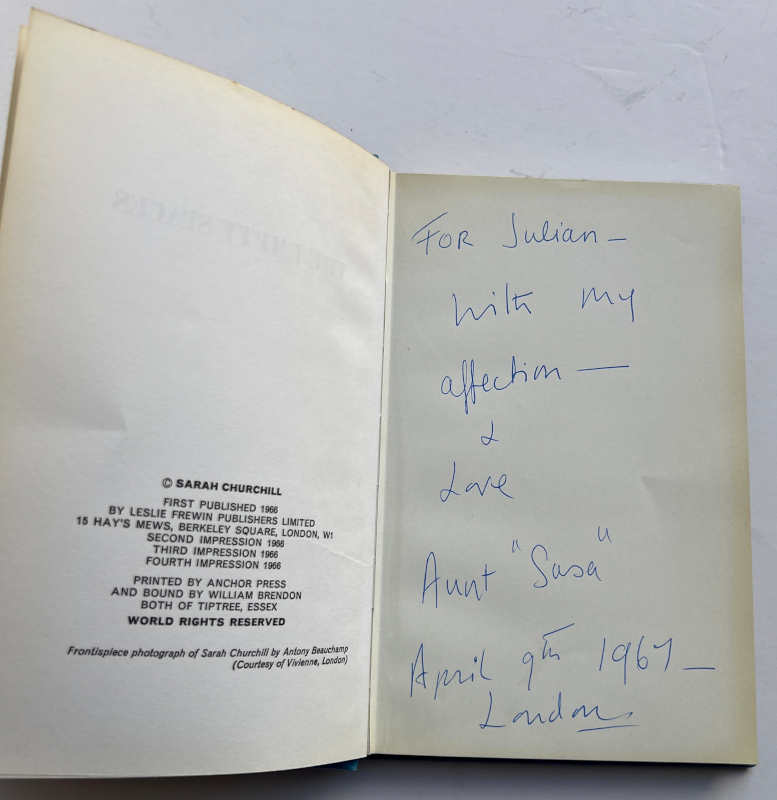 © SARAH CHURCHILL
FIRST PUBLISHED 1966
BY LESLIE FREWIN PUBLISHERS LIMITED
15 HAY'S MEWS, BERKELEY SQUARE, LONDON, W1
SECOND IMPRESSION 1966
THIRD IMPRESSION 1966
FOURTH IMPRESSION 1966
PRINTED BY ANCHOR PRESS
AND BOUND BY WILLIAM BRENDON
BOTH OF TIPTREE, ESSEX
WORLD RIGHTS RESERVED
Frontispiece photograph of Sarah Churchill by Antony Beauchamp
(Courtesy of Vivienne, London)
FOR Julian —
With my
affection —
&
Love
Aunt "Sasa"
April 9th 1967 —
London